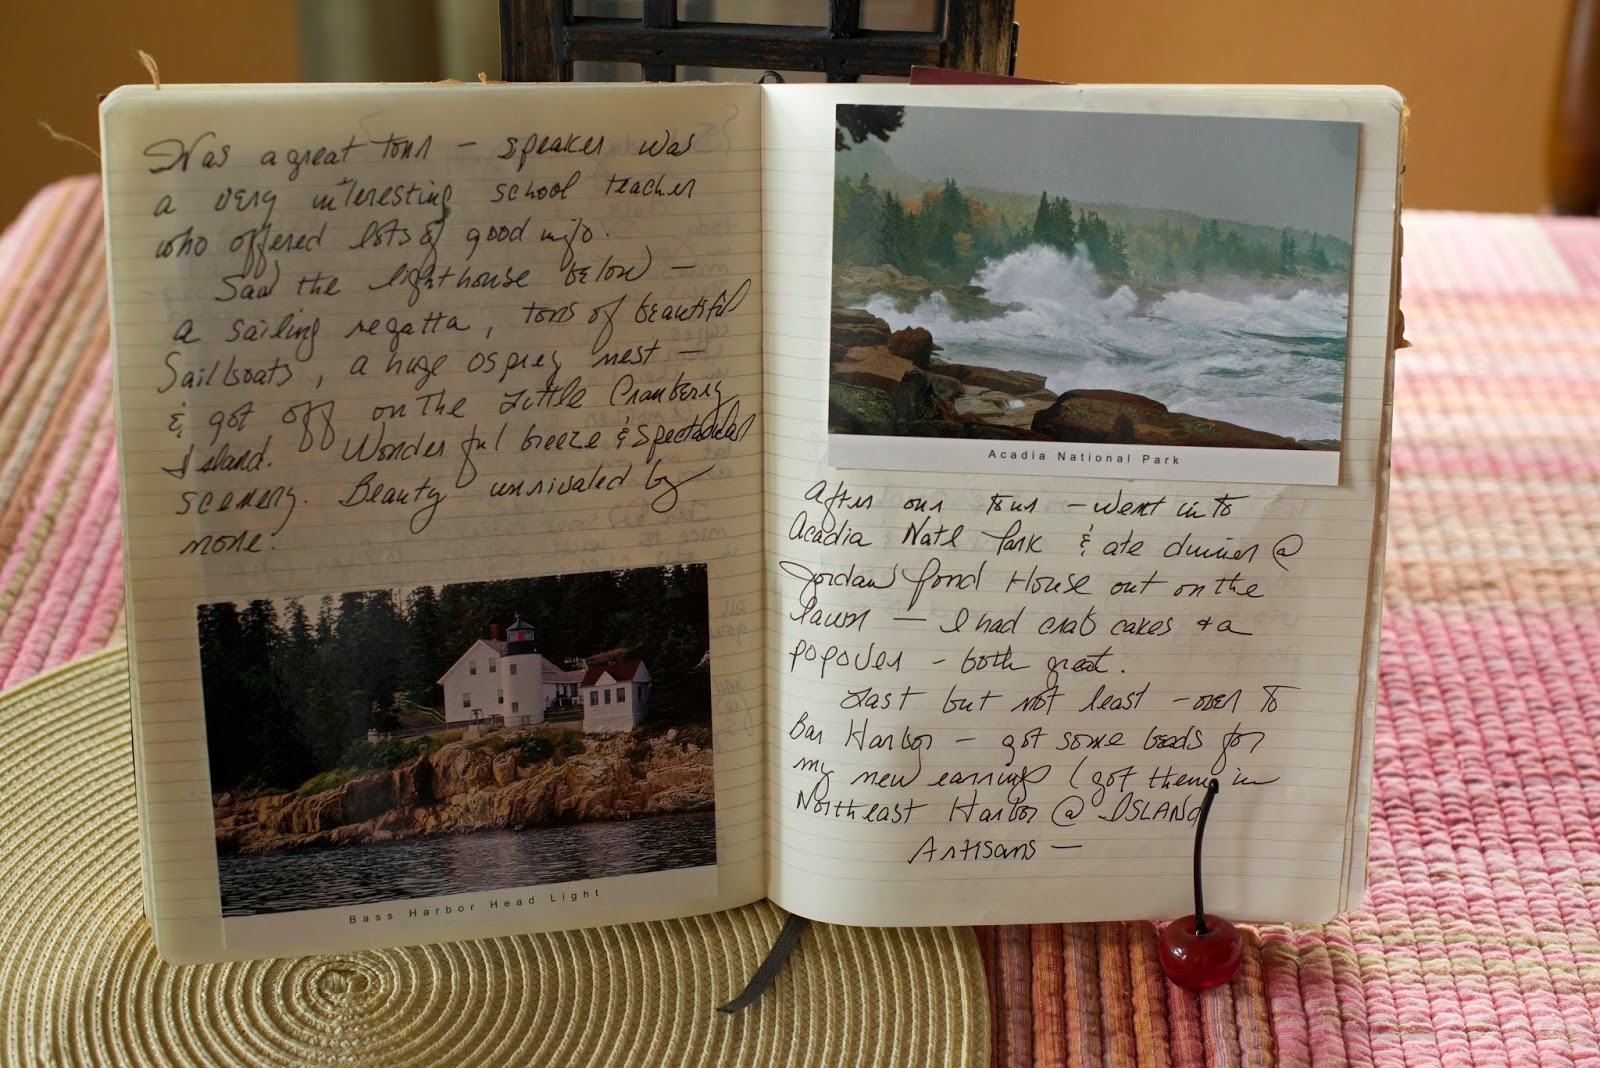 Was a great tour – speaker was
a very interesting school teacher
who offered lots of good info.
Saw the lighthouse below –
a sailing regatta, tons of beautiful
Sailboats, a huge osprey nest –
& got off on the Little Cranberry
Island. Wonderful breeze & spectacular
scenery. Beauty unrivaled by
none.
Bass Harbor Head Light
Acadia National Park
After our tour – went in to
Acadia Natl Park & ate dinner @
Jordan Pond House out on the
lawn – I had crab cakes & a
popover – both great.
Last but not least – over to
Bar Harbor – got some beads for
my new earrings (got them in
Northeast Harbor @ ISLAND
Artisans –